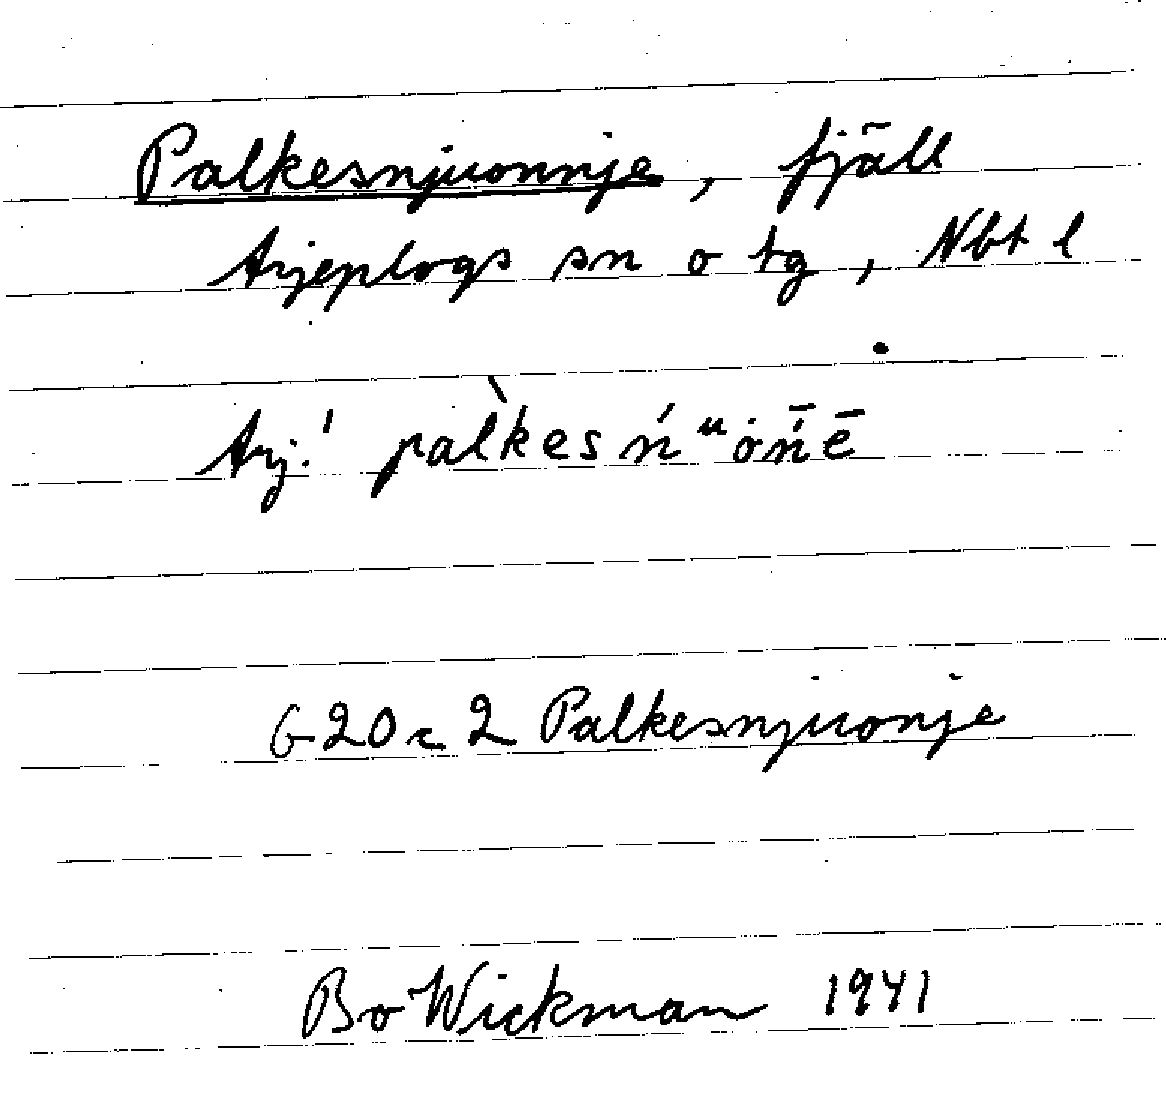 Palkesnjuonnje, fjäll
Arjeplogs sn o tg, Nbt l
Arj.' pàlkesń ᵘȯń̄ē
G20c2 Palkesnjuonje
Bo Wickman 1941